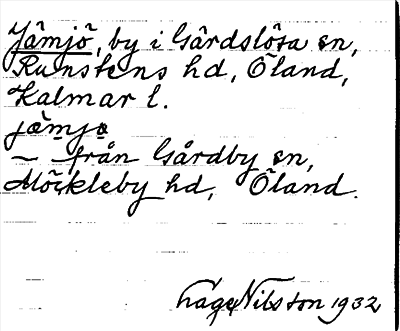 Jämjö, by i Gårdslösa sn,
Runstens hd, Öland,
Kalmar l.
jæmjə
— från Gårdby sn,
Möckleby hd, Öland.
Nilsson 1932